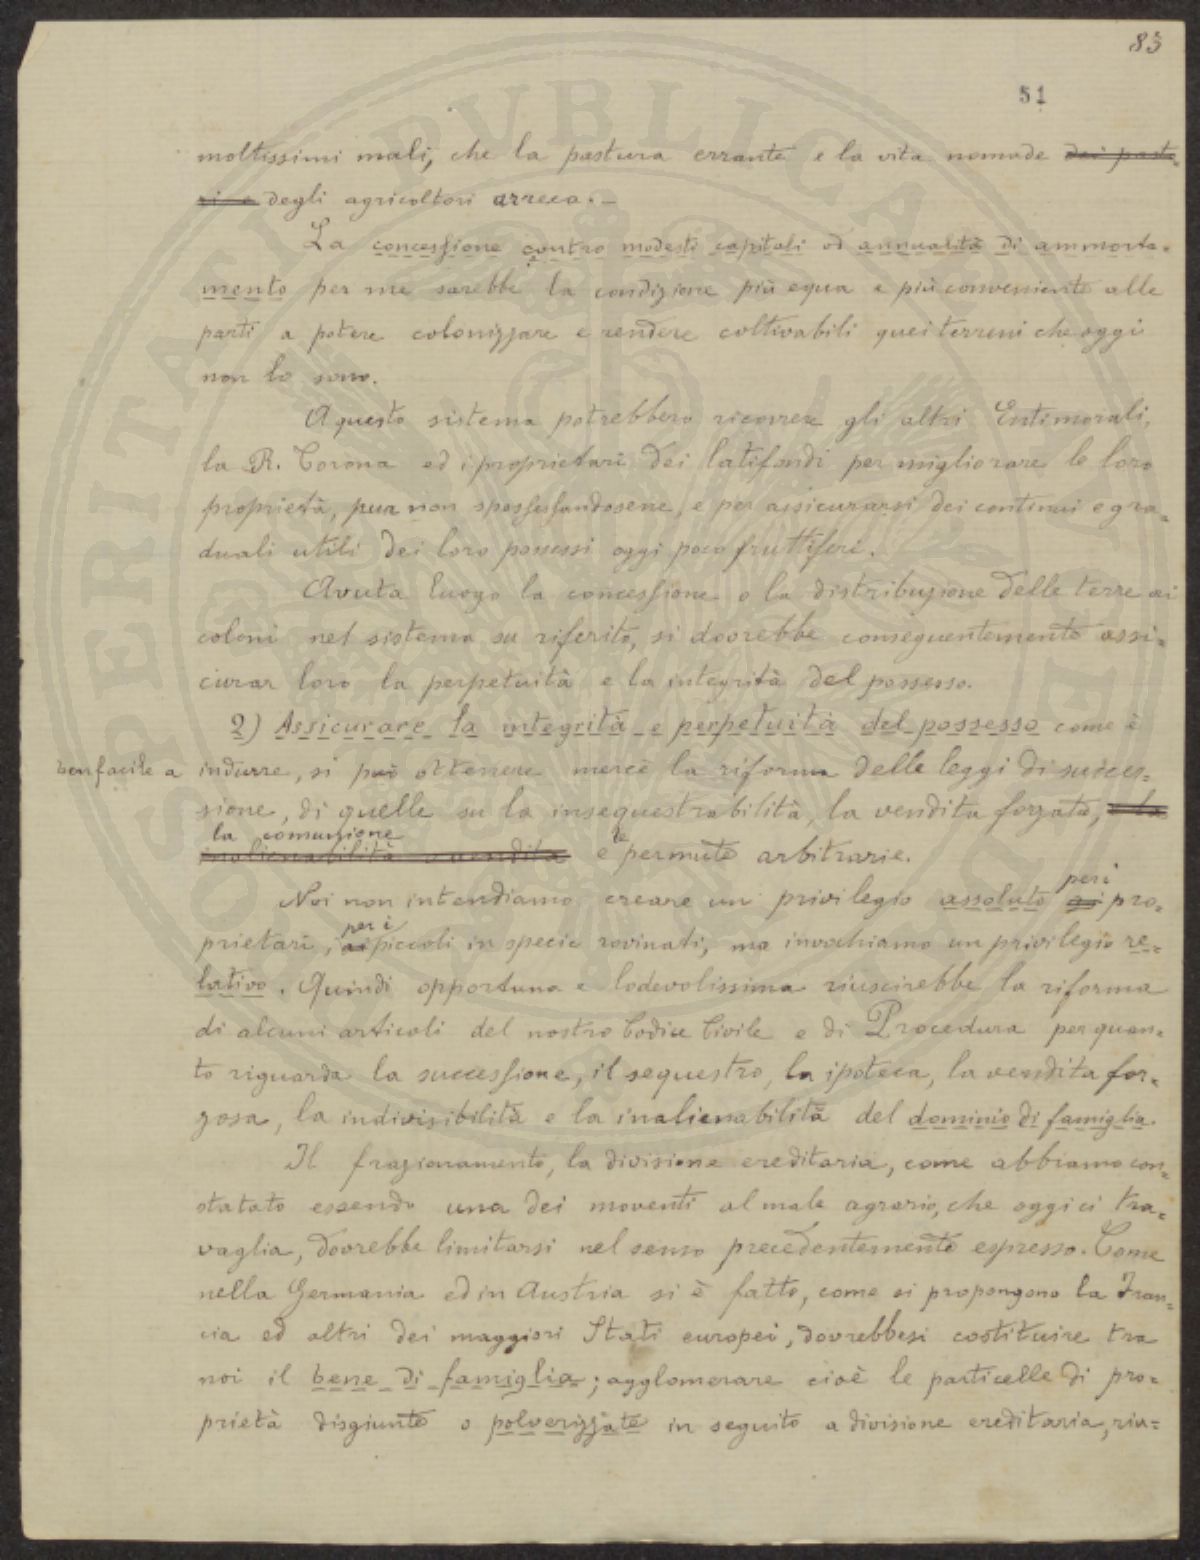 83
51
moltissimi mali, che la pastura errante e la vita nomade dei pasto-
ri e degli agricoltori arreca. –
La concessione contro modesti capitali od annualità di ammorta-
mento per me sarebbe la condizione più equa e più conveniente alle
parti a potere colonizzare e rendere coltivabili quei terreni che oggi
non lo sono.
A questo sistema potrebbero ricorrere gli altri Enti morali,
la R. Corona ed i proprietari dei latifondi per migliorare le loro
proprietà, pur non spossessandosene, e per assicurarsi dei continui e gra-
duali utili dei loro possessi oggi poco fruttiferi.
Avuta luogo la concessione o la distribuzione delle terre ai
coloni nel sistema su riferito, si dovrebbe conseguentemente assi-
curar loro la perpetuità e la integrità del possesso.
2) Assicurare la integrità e perpetuità del possesso come è
ben facile a indurre, si può ottenere mercè la riforma delle leggi di succes-
sione, di quelle su la insequestrabilità, la vendita forzata, e la
la comunione le
inalienabilità o vendita e permute arbitrarie.
Noi non intendiamo creare un privilegio assoluto ai per i pro-
prietari, ai per i piccoli in specie rovinati, ma invochiamo un privilegio re-
lativo. Quindi opportuna e lodevolissima riuscirebbe la riforma
di alcuni articoli del nostro Codice Civile e di Procedura per quan-
to riguarda la successione, il sequestro, la ipoteca, la vendita for-
zosa, la indivisibilità e la inalienabilità del dominio di famiglia
Il frazionamento, la divisione ereditaria, come abbiamo con-
statato essendo una dei moventi al male agrario, che oggi ci tra-
vaglia, dovrebbe limitarsi nel senso precedentemente espresso. Come
nella Germania ed in Austria si è fatto, come si propongono la Fran-
cia ed altri dei maggiori Stati europei, dovrebbesi costituire tra
noi il bene di famiglia; agglomerare cioè le particelle di pro-
prietà disgiunte o polverizzate in seguito a divisione ereditaria, riu-